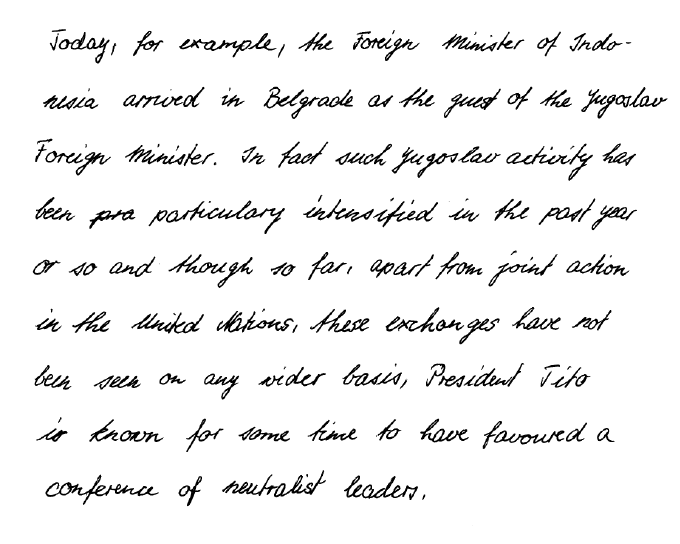 Today, for example, the Foreign Minister of Indo-
nesia arrived in Belgrade as the guest of the Yugoslav
Foreign Minister. In fact such Yugoslav activity has
been particulary intensified in the past year
or so and though so far, apart from joint action
in the United Nations, these exchanges have not
been seen on any wider basis, President Tito
is known for some time to have favoured a
conference of neutralist leaders.